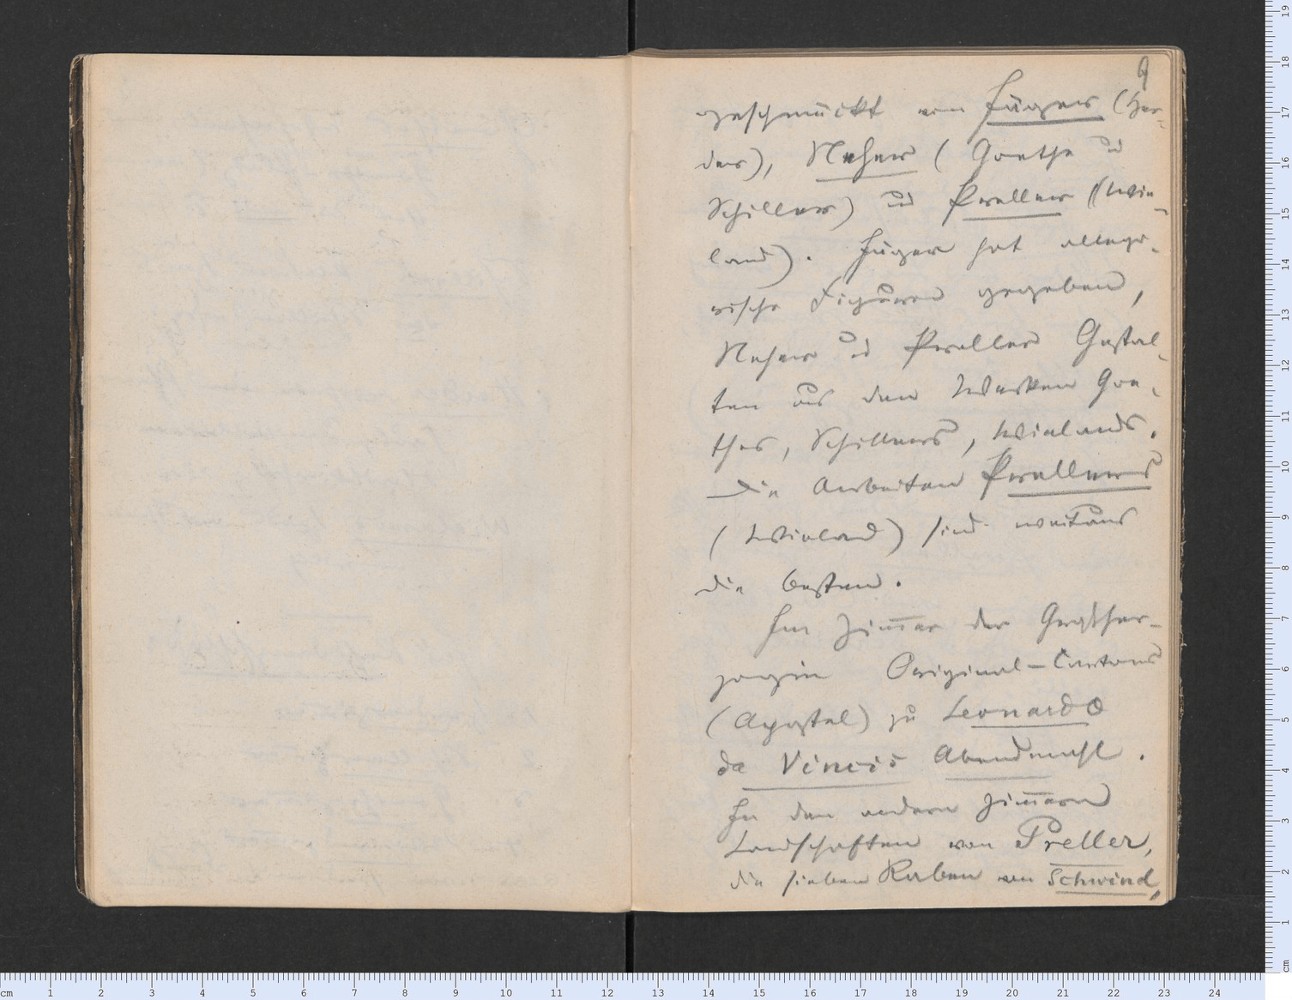 9
geschmückt von Jägers (Her-
der), Nehers (Goethe u
Schillers) und Prellers (Wie-
land). Jäger hat allego-
rische Figuren gegeben,
Neher und Preller Gestal-
ten aus den Werken Goe-
thes, Schillers, Wielands.
Die Arbeiten Prellers
(Wieland) sind weitaus
die besten.
Im Zimmer der Großher-
zogin Original-Cartons
(Apostel) zu Leonardo
da Vincis Abendmahl.
In den andern Zimmern
Landschaften von Preller,
die sieben Raben von Schwind,